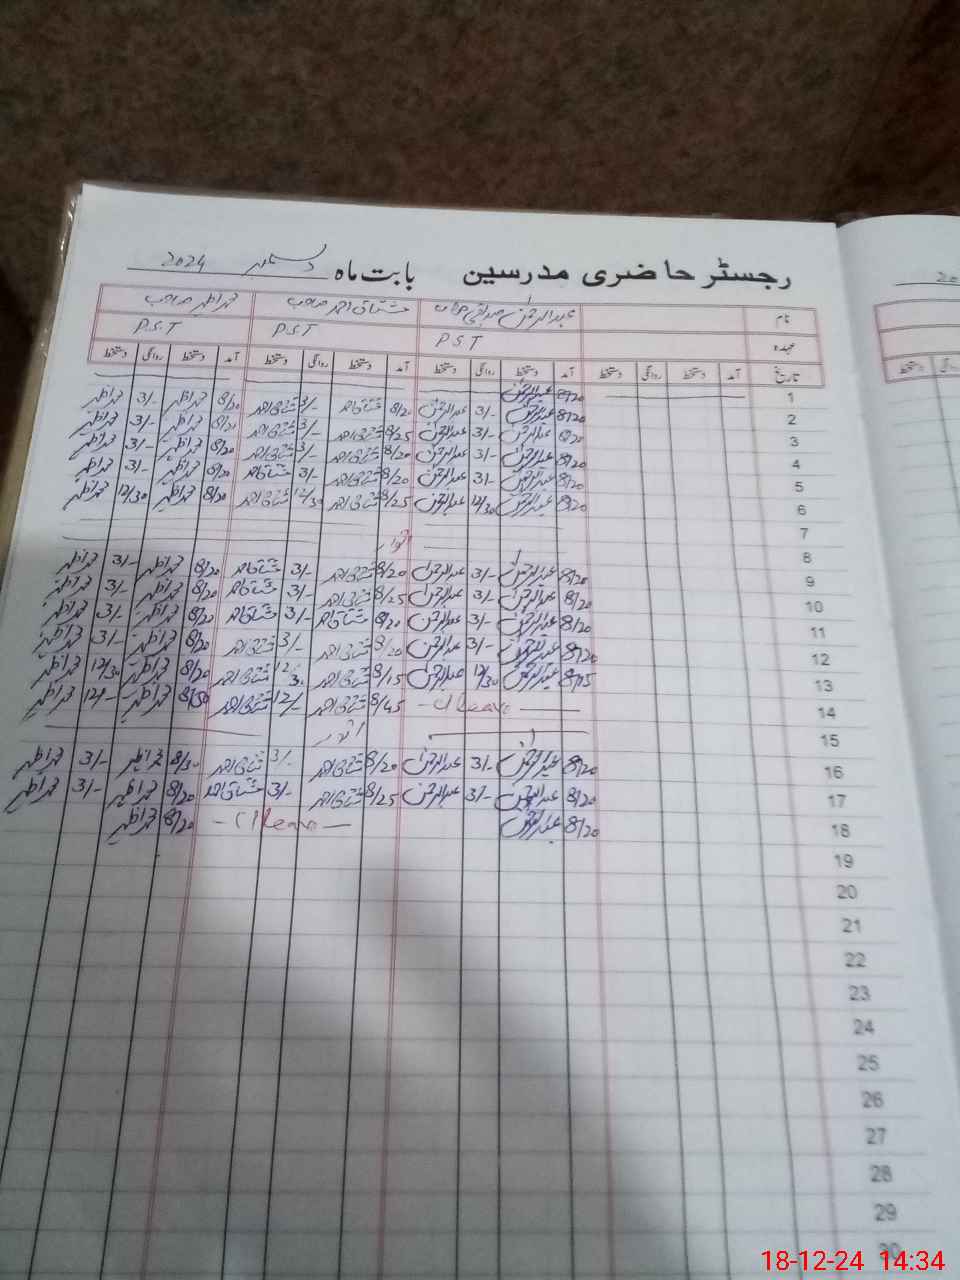 رجسٹر حاضری مدرسین بابت ماہ دسمبر 2024
نام عبدالرحمن صدیقی مشتاق احمد صاحب محمد اظہر صاحب
عہدہ PST PST PST
تاریخ آمد دستخط روانگی دستخط آمد دستخط روانگی دستخط آمد دستخط روانگی دستخط آمد دستخط روانگی دستخط
1
2 8/20 عبدالرحمن 3/- عبدالرحمن 8/20 مشتاق احمد 3/- مشتاق احمد 8/20 محمد اظہر 3/- محمد اظہر
3 8/20 عبدالرحمن 3/- عبدالرحمن 8/25 مشتاق احمد 3/- مشتاق احمد 8/20 محمد اظہر 3/- محمد اظہر
4 8/20 عبدالرحمن 3/- عبدالرحمن 8/20 مشتاق احمد 3/- مشتاق احمد 8/20 محمد اظہر 3/- محمد اظہر
5 8/20 عبدالرحمن 3/- عبدالرحمن 8/20 مشتاق احمد 3/- مشتاق احمد 8/20 محمد اظہر 3/- محمد اظہر
6 8/20 عبدالرحمن 12/30 عبدالرحمن 8/25 مشتاق احمد 12/30 مشتاق احمد 8/20 محمد اظہر 12/30 محمد اظہر
7
8 اتوار
9 8/20 عبدالرحمن 3/- عبدالرحمن 8/20 مشتاق احمد 3/- مشتاق احمد 8/20 محمد اظہر 3/- محمد اظہر
10 8/20 عبدالرحمن 3/- عبدالرحمن 8/25 مشتاق احمد 3/- مشتاق احمد 8/20 محمد اظہر 3/- محمد اظہر
11 8/20 عبدالرحمن 3/- عبدالرحمن 8/20 مشتاق احمد 3/- مشتاق احمد 8/20 محمد اظہر 3/- محمد اظہر
12 8/20 عبدالرحمن 3/- عبدالرحمن 8/20 مشتاق احمد 3/- مشتاق احمد 8/20 محمد اظہر 3/- محمد اظہر
13 8/15 عبدالرحمن 12/30 عبدالرحمن 8/15 مشتاق احمد 12/30 مشتاق احمد 8/20 محمد اظہر 12/30 محمد اظہر
14 C/Leave 8/45 مشتاق احمد 12/- مشتاق احمد 8/30 محمد اظہر 12/- محمد اظہر
15 اتوار
16 8/20 عبدالرحمن 3/- عبدالرحمن 8/20 مشتاق احمد 3/- مشتاق احمد 8/30 محمد اظہر 3/- محمد اظہر
17 8/20 عبدالرحمن 3/- عبدالرحمن 8/25 مشتاق احمد 3/- مشتاق احمد 8/20 محمد اظہر 3/- محمد اظہر
18 8/20 عبدالرحمن C/Leave 8/20 محمد اظہر
19
20
21
22
23
24
25
26
27
28
29
30
18-12-24 14:34